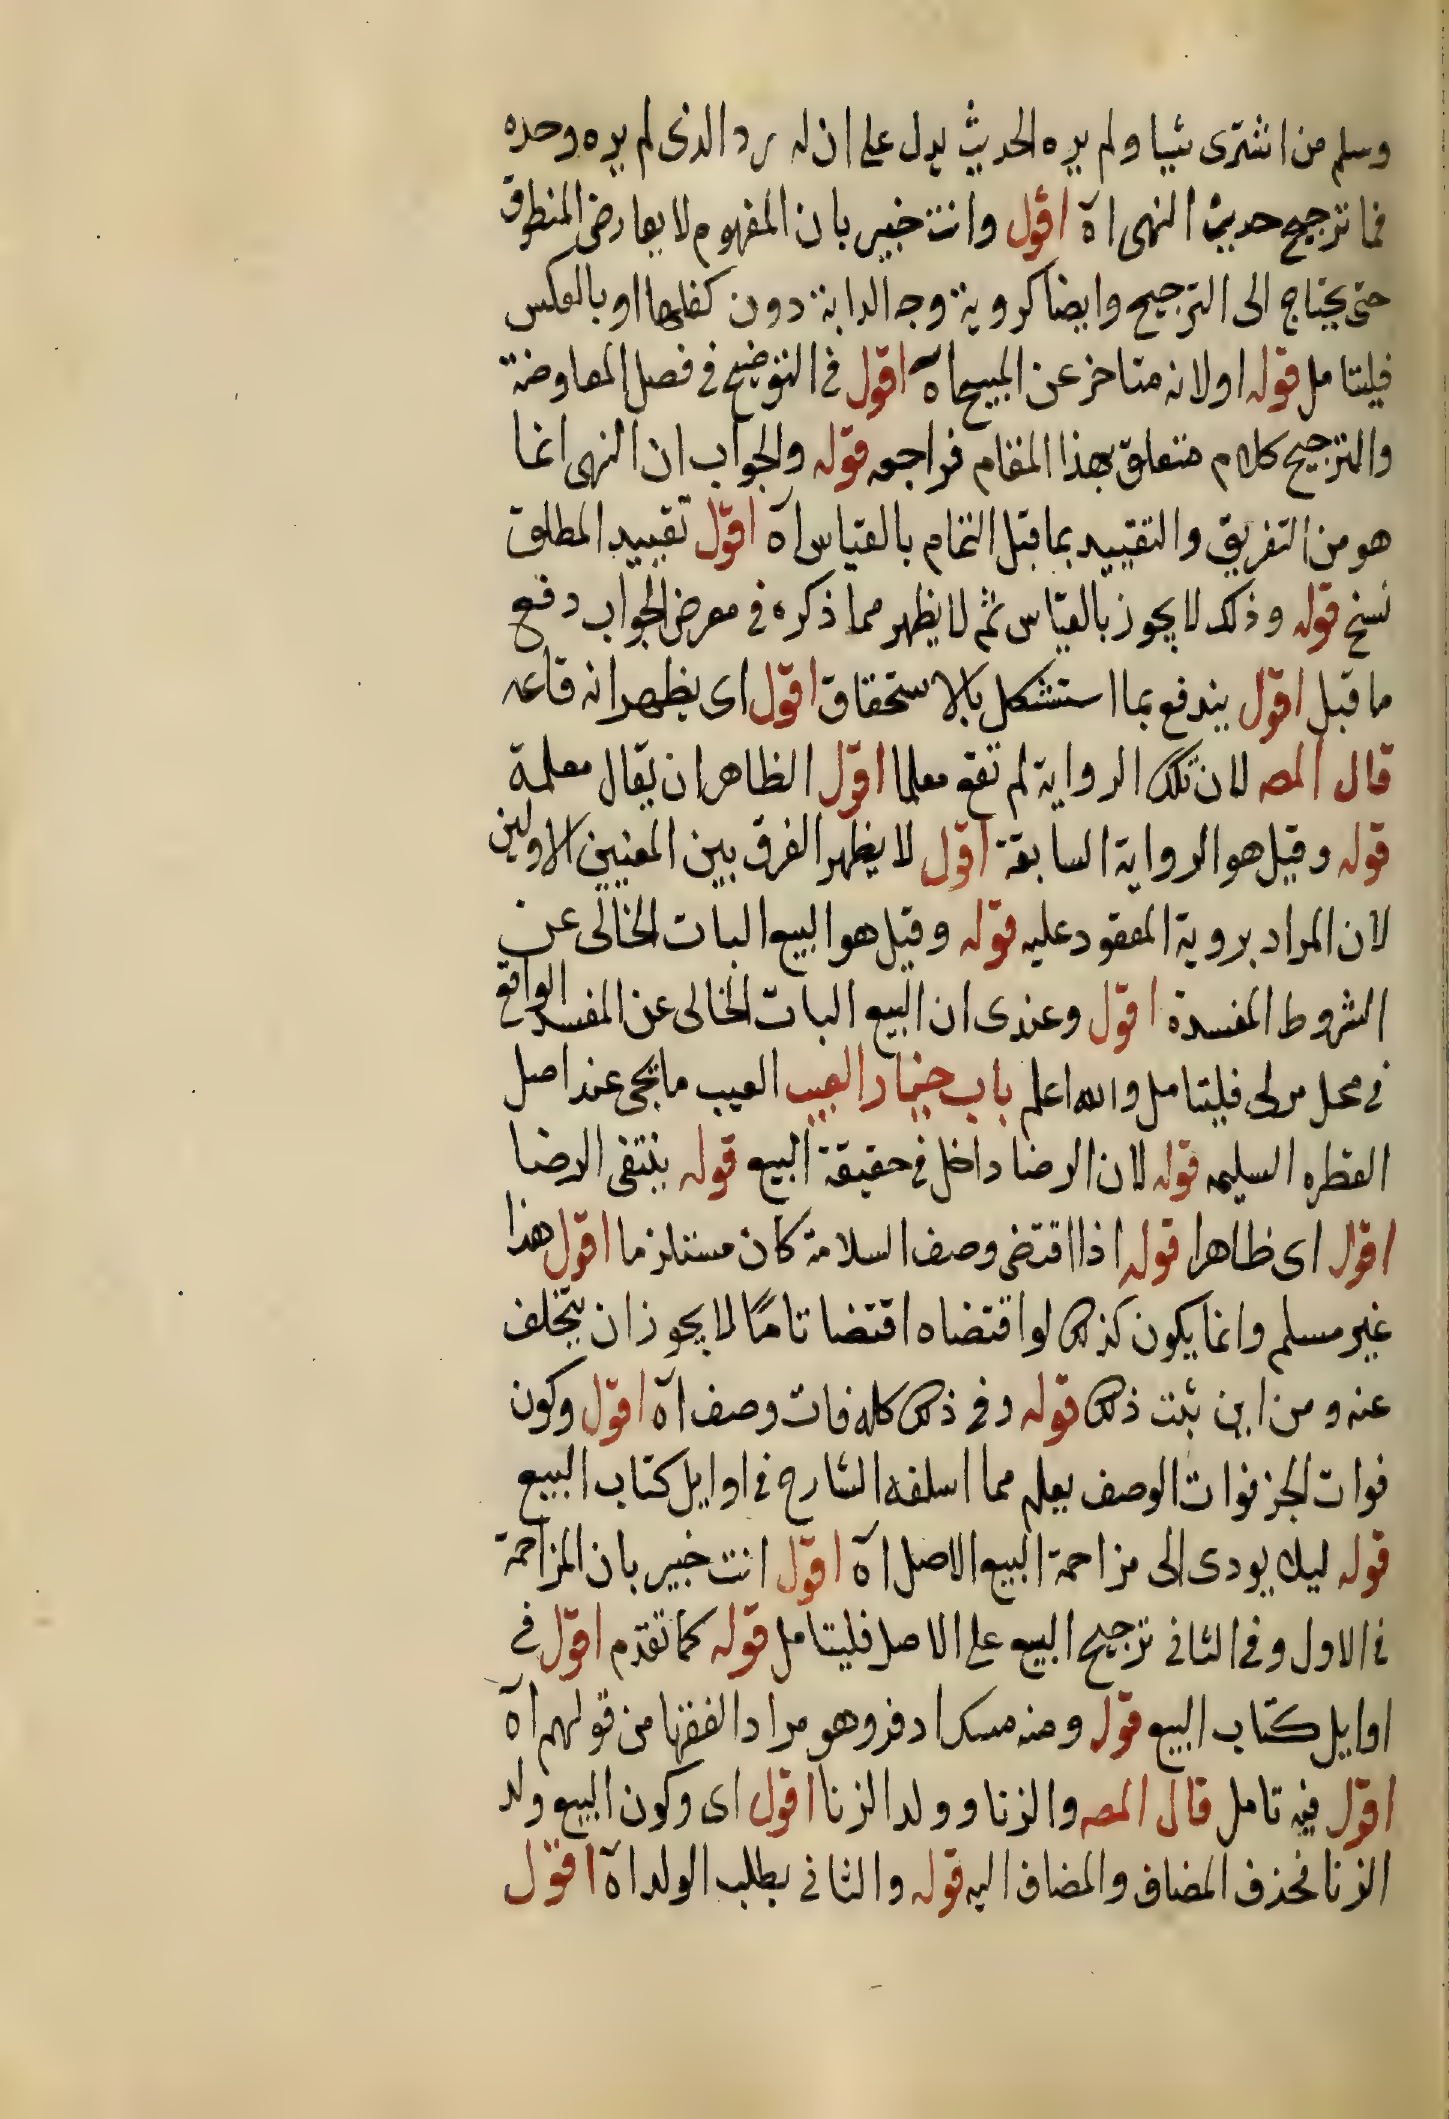 وسلم من اشترى شيا ولم يره الحديث يدل على ان له رد الذى لم يره وحده
فما ترجيح حديث النهى اه اقول وانت خبير بان المفهوم لا يعارض المنطوق
حتى يحتاج الى الترجيح وايضا كروية وجه الدابة دون كفلها او بالعكس
فليتامل قوله اولانه متاخر عن المبيح اه اقول فى التوضيح فى فصل المعارضة
والترجيح كلام متعلق بهذا المقام فراجعه قوله والجواب ان النهى انما
هو من التفريق والتقييد بما قبل التمام بالقياس اه اقول تقييد المطلق
نسخ قوله وذلك لا يجوز بالقياس ثم لا يظهر مما ذكره فى معرض الجواب دفع
ما قبل اقول يندفع بما استشكل بالاستحقاق اقول اى يظهر انه
قال المصه لان تلك الرواية لم تقع معلما اقول الظاهر ان يقال معلمة
قوله وقيل هو الرواية السابقة اقول لا يظهر الفرق بين المعنيين الاولين
لان المراد بروية المعقود عليه قوله وقيل هو البيع البات الخالى عن
الشروط المفسدة اقول وعندى ان البيع البات الخالى عن المفسد الواقع
فى محل مرئى فليتامل والله اعلم باب خيار العيب العيب ما يخ عند اصل
الفطره السليمه قوله لان الرضا داخل فى حقيقة البيع قوله ينتفى الرضا
اقول اى ظاهرا قوله اذا اقتضى وصف السلامة كان مستلزما اقول هذا
غير مسلم وانما يكون كذلك لو اقتضاه اقتضا تاما لا يجوز ان يتخلف
عنه ومن اين ثبت ذلك قوله وفى ذلك كله فات وصف اه اقول وكون
فوات الجز فوات الوصف يعلم مما اسلفه الشارح فى اوايل كتاب البيع
قوله ليلا يودى الى مزاحمة البيع الاصل اه اقول انت خبير بان المزاحمة
فى الاول وفى الثانى ترجيح البيع على الاصل فليتامل قوله كما تقدم اقول فى
اوايل كتاب البيع قول ومنه مسك ادفر وهو مراد الفقها من قولهم اه
اقول فيه تامل قال المصه والزنا وولد الزنا اقول اى وكون البيع ولد
الزنا فحذف المضاف والمضاف اليه قوله والثانى بطلب الولد اه اقول